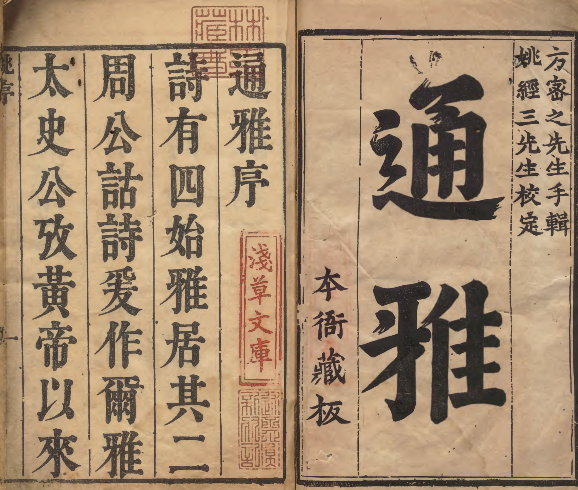 方密之先生手輯
姚經三先生校定
通雅
本衙藏板
通雅序
淺草文庫
詩有四始雅居其二
周公詁詩爰作爾雅
太史公攷黃帝以來
姚序
一